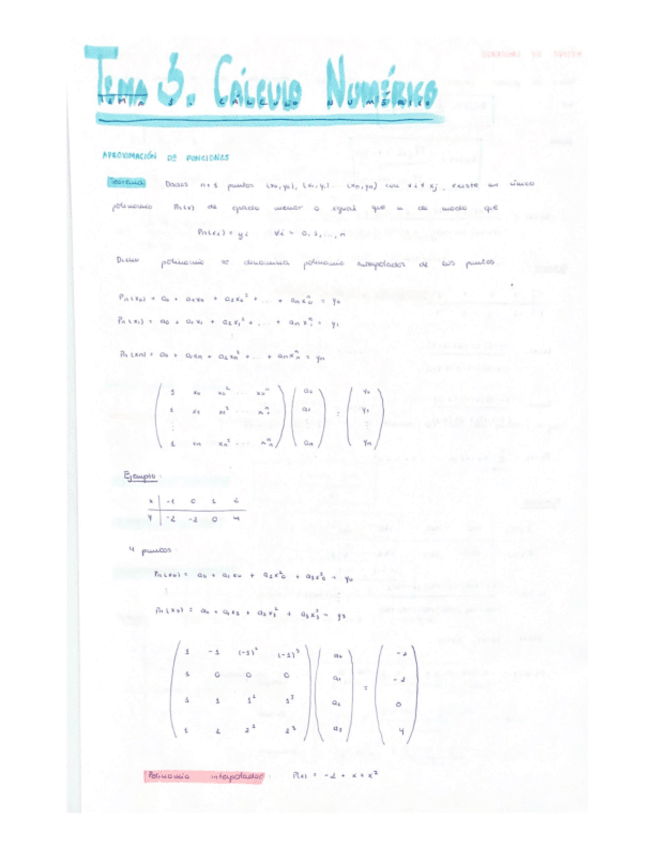 TEMA 3. CÁLCULO NUMÉRICO
APROXIMACIÓN DE FUNCIONES
Teorema Dados n+1 puntos (x₀,y₀), (x₁,y₁)... (xₙ,yₙ) con xᵢ ≠ xⱼ, existe un único
polinomio Pₙ(x) de grado menor o igual que n de modo que
Pₙ(xᵢ) = yᵢ ∀i = 0, 1, ..., n
Dicho polinomio se denomina polinomio interpolador de los puntos.
Pₙ(x₀) = a₀ + a₁x₀ + a₂x₀² + ... + aₙx₀ⁿ = y₀
Pₙ(x₁) = a₀ + a₁x₁ + a₂x₁² + ... + aₙx₁ⁿ = y₁
Pₙ(xₙ) = a₀ + a₁xₙ + a₂xₙ² + ... + aₙxₙⁿ = yₙ
1 x₀ x₀² ... x₀ⁿ a₀ y₀
1 x₁ x₁² ... x₁ⁿ a₁ = y₁
⋮ ⋮
1 xₙ xₙ² ... xₙⁿ aₙ yₙ
Ejemplo:
x -1 0 1 2
y -2 -2 0 4
4 puntos:
Pₙ(x₀) = a₀ + a₁x₀ + a₂x₀² + a₃x₀³ = y₀
Pₙ(x₃) = a₀ + a₁x₃ + a₂x₃² + a₃x₃³ = y₃
1 -1 (-1)² (-1)³ a₀ -2
1 0 0 0 a₁ = -2
1 1 1² 1³ a₂ 0
1 2 2² 2³ a₃ 4
Polinomio interpolador: P(x) = -2 + x + x²